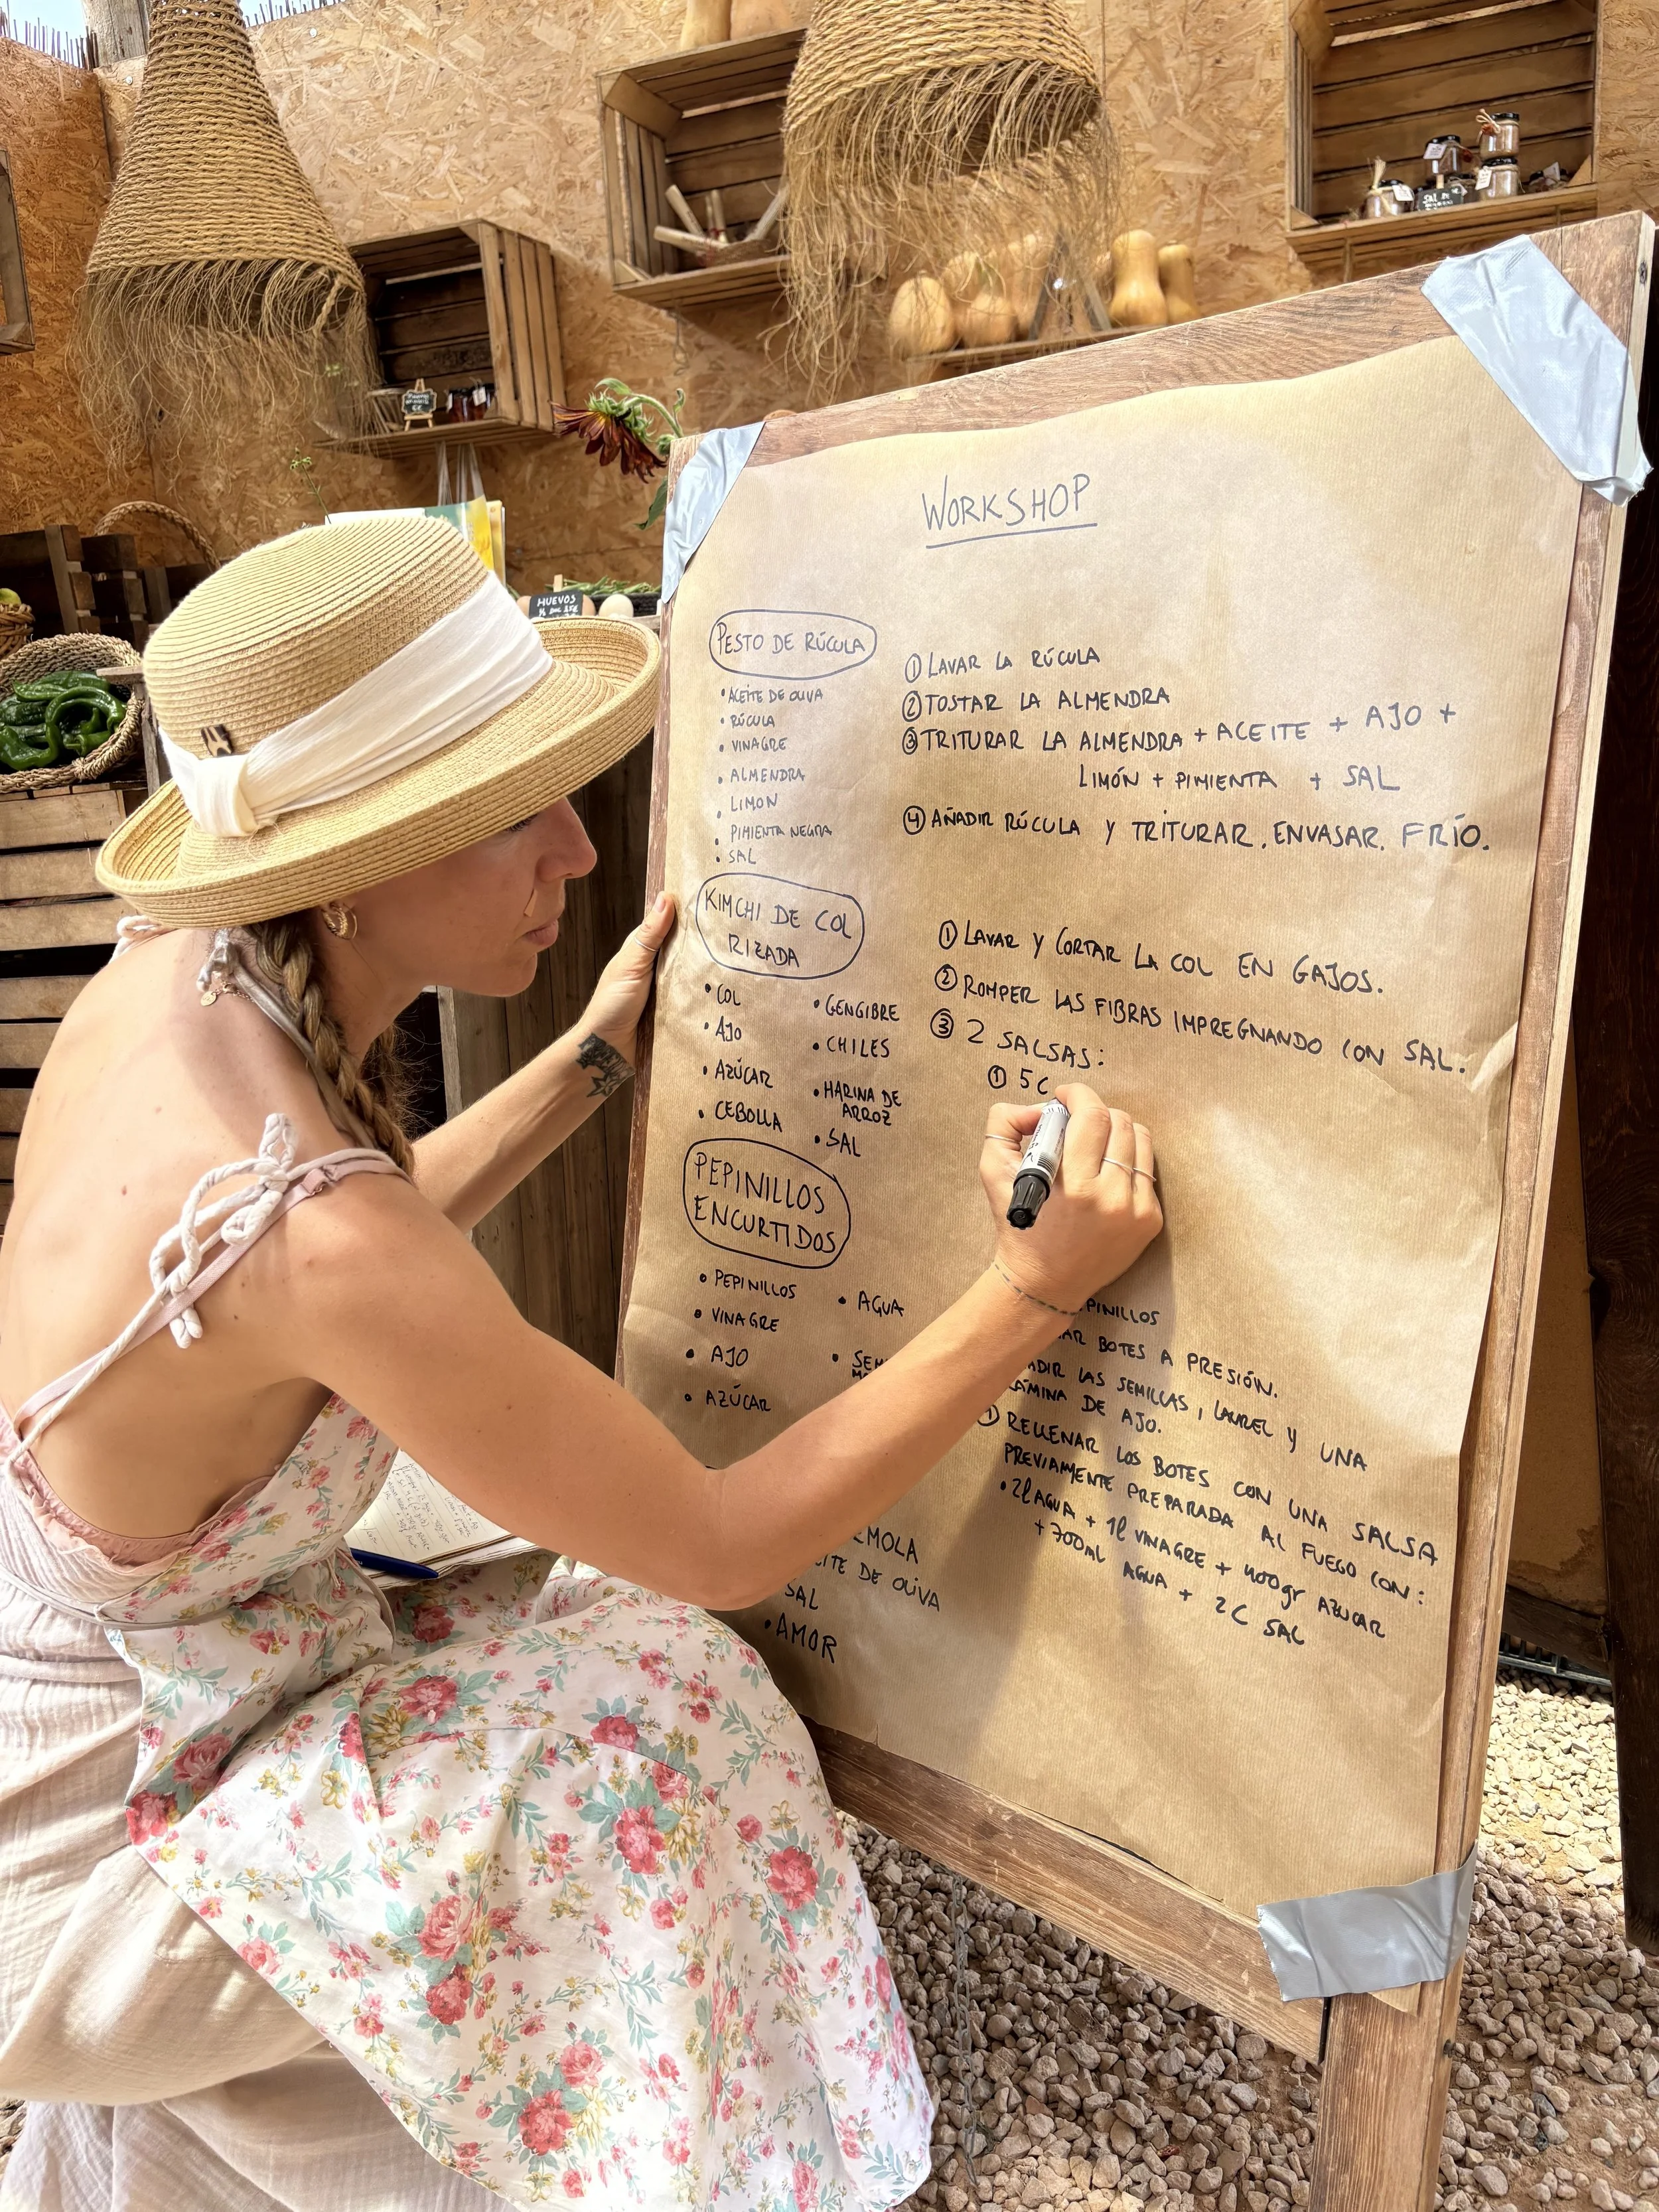 WORKSHOP
PESTO DE RÚCULA
• ACEITE DE OLIVA
• RÚCULA
• VINAGRE
• ALMENDRA
• LIMON
• PIMIENTA NEGRA
• SAL
① LAVAR LA RÚCULA
② TOSTAR LA ALMENDRA
③ TRITURAR LA ALMENDRA + ACEITE + AJO +
LIMÓN + PIMIENTA + SAL
④ AÑADIR RÚCULA Y TRITURAR. ENVASAR. FRÍO.
KIMCHI DE COL
RIZADA
• COL
• AJO
• AZÚCAR
• CEBOLLA
• GENGIBRE
• CHILES
• HARINA DE
ARROZ
• SAL
① LAVAR Y CORTAR LA COL EN GAJOS.
② ROMPER LAS FIBRAS IMPREGNANDO CON SAL.
③ 2 SALSAS:
① 5C
PEPINILLOS
ENCURTIDOS
• PEPINILLOS
• VINAGRE
• AJO
• AZÚCAR
• AGUA
• SEM
PINILLOS
AR BOTES A PRESIÓN.
ADIR LAS SEMILLAS, LAUREL Y UNA
LÁMINA DE AJO.
RELLENAR LOS BOTES CON UNA SALSA
PREVIAMENTE PREPARADA AL FUEGO CON:
• 2l AGUA + 1l VINAGRE + 400gr AZUCAR
+ 700ml AGUA + 2C SAL
MOLA
ITE DE OLIVA
SAL
• AMOR
HUEVOS